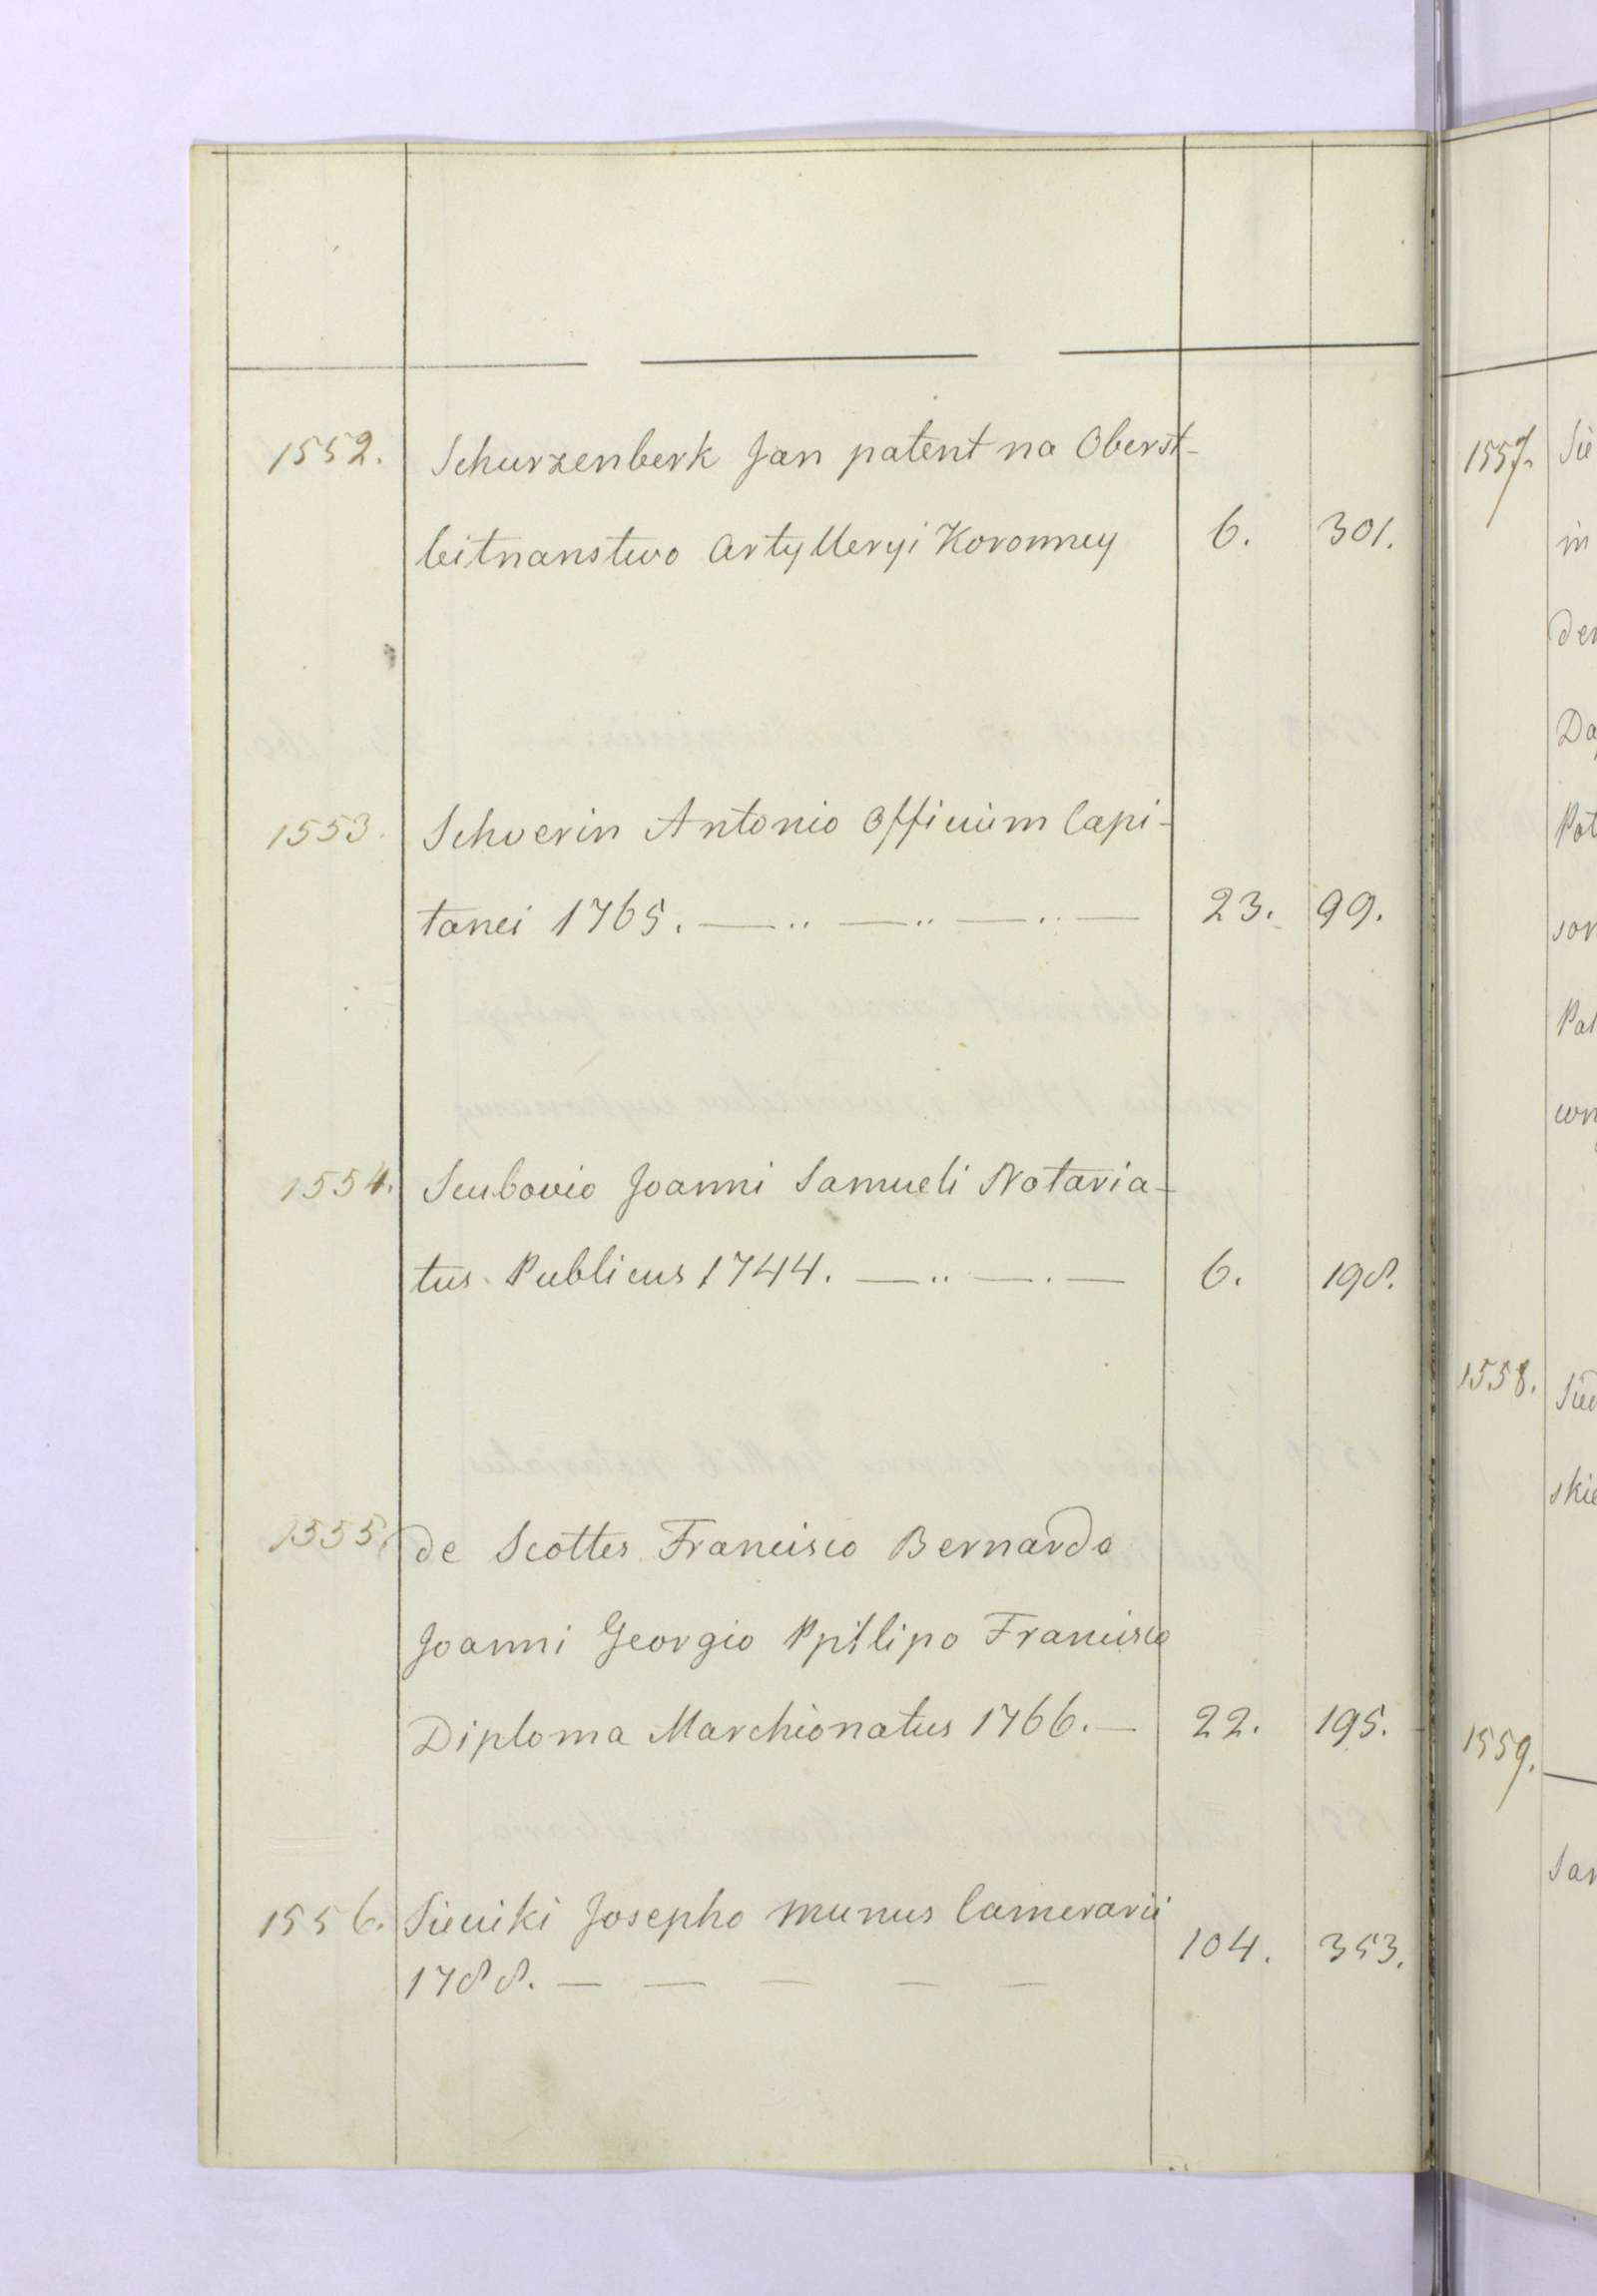 1552. Schurzenberk Jan patent na Oberst-
leitnanstwo Artylleryi Koronney 6. 301.
1553. Schverin Antonio Officium Capi-
tanei 1765. — .. — .. — .. — 23. 99.
1554. Scubovio Joanni Samueli Notaria-
tus Publicus 1744. — .. — . — 6. 198.
1555. de Scottes Francisco Bernardo
Joanni Georgio Ppilipo Francisco
Diploma Marchionatus 1766. — 22. 195.
1556. Siecicki Josepho munus Camerarii 104. 353.
1788. — — — — —
1557. Sie
in
den
Da
Pot
son
Pal
con
1558. Sied
skie
1559.
San